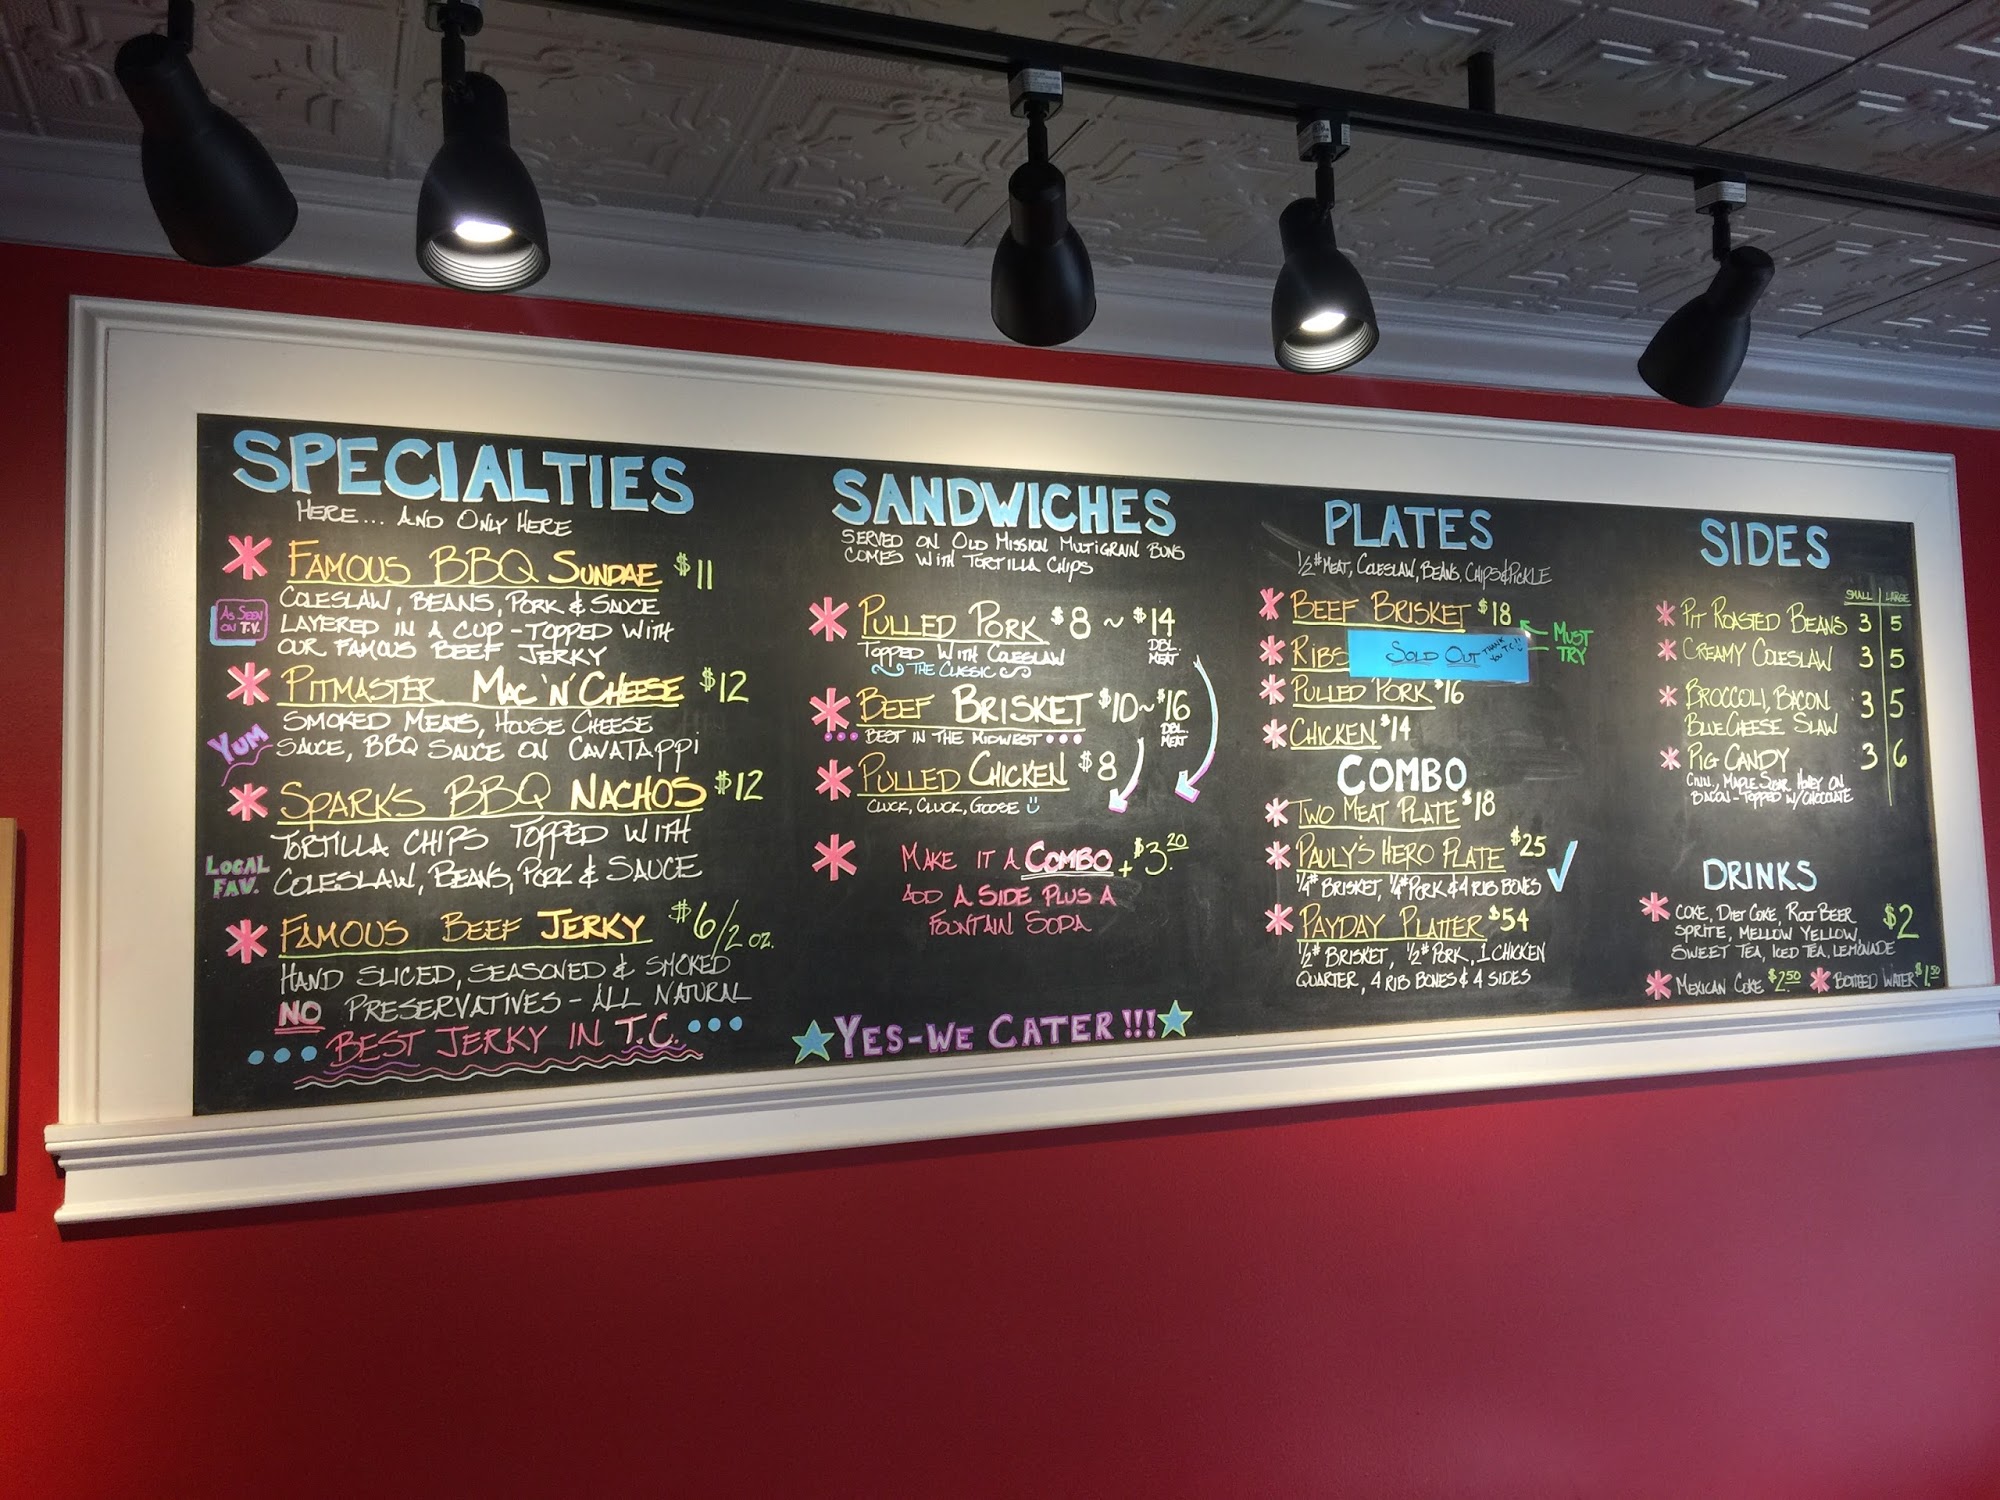 SPECIALTIES
HERE... AND ONLY HERE
* FAMOUS BBQ SUNDAE $11
AS SEEN ON T.V.
COLESLAW, BEANS, PORK & SAUCE
LAYERED IN A CUP - TOPPED WITH
OUR FAMOUS BEEF JERKY
* PITMASTER MAC 'N' CHEESE $12
YUM
SMOKED MEATS, HOUSE CHEESE
SAUCE, BBQ SAUCE ON CAVATAPPI
* SPARKS BBQ NACHOS $12
LOCAL FAV.
TORTILLA CHIPS TOPPED WITH
COLESLAW, BEANS, PORK & SAUCE
* FAMOUS BEEF JERKY $6/2 OZ.
HAND SLICED, SEASONED & SMOKED
NO PRESERVATIVES - ALL NATURAL
BEST JERKY IN T.C.
SANDWICHES
SERVED ON OLD MISSION MULTIGRAIN BUNS
COMES WITH TORTILLA CHIPS
* PULLED PORK $8 ~ $14
DBL. MEAT
TOPPED WITH COLESLAW
~ THE CLASSIC ~
* BEEF BRISKET $10 ~ $16
DBL. MEAT
BEST IN THE MIDWEST
* PULLED CHICKEN $8
CLUCK, CLUCK, GOOSE
* MAKE IT A COMBO + $3.20
ADD A SIDE PLUS A
FOUNTAIN SODA
YES - WE CATER!!!
PLATES
1/2# MEAT, COLESLAW, BEANS, CHIPS & PICKLE
* BEEF BRISKET $18
MUST TRY
* RIBS
SOLD OUT THANK YOU T.C.!!
* PULLED PORK $16
* CHICKEN $14
COMBO
* TWO MEAT PLATE $18
* PAULY'S HERO PLATE $25
1/4# BRISKET, 1/4# PORK & 4 RIB BONES
* PAYDAY PLATTER $54
1/2# BRISKET, 1/2# PORK, 1 CHICKEN
QUARTER, 4 RIB BONES & 4 SIDES
SIDES
SMALL | LARGE
* PIT ROASTED BEANS 3 | 5
* CREAMY COLESLAW 3 | 5
* BROCCOLI, BACON
BLUE CHEESE SLAW 3 | 5
* PIG CANDY 3 | 6
CINN., MAPLE SUGAR, HONEY ON
BACON - TOPPED W/ CHOCOLATE
DRINKS
* COKE, DIET COKE, ROOT BEER $2
SPRITE, MELLOW YELLOW,
SWEET TEA, ICED TEA, LEMONADE
* MEXICAN COKE $2.50 * BOTTLED WATER $1.50